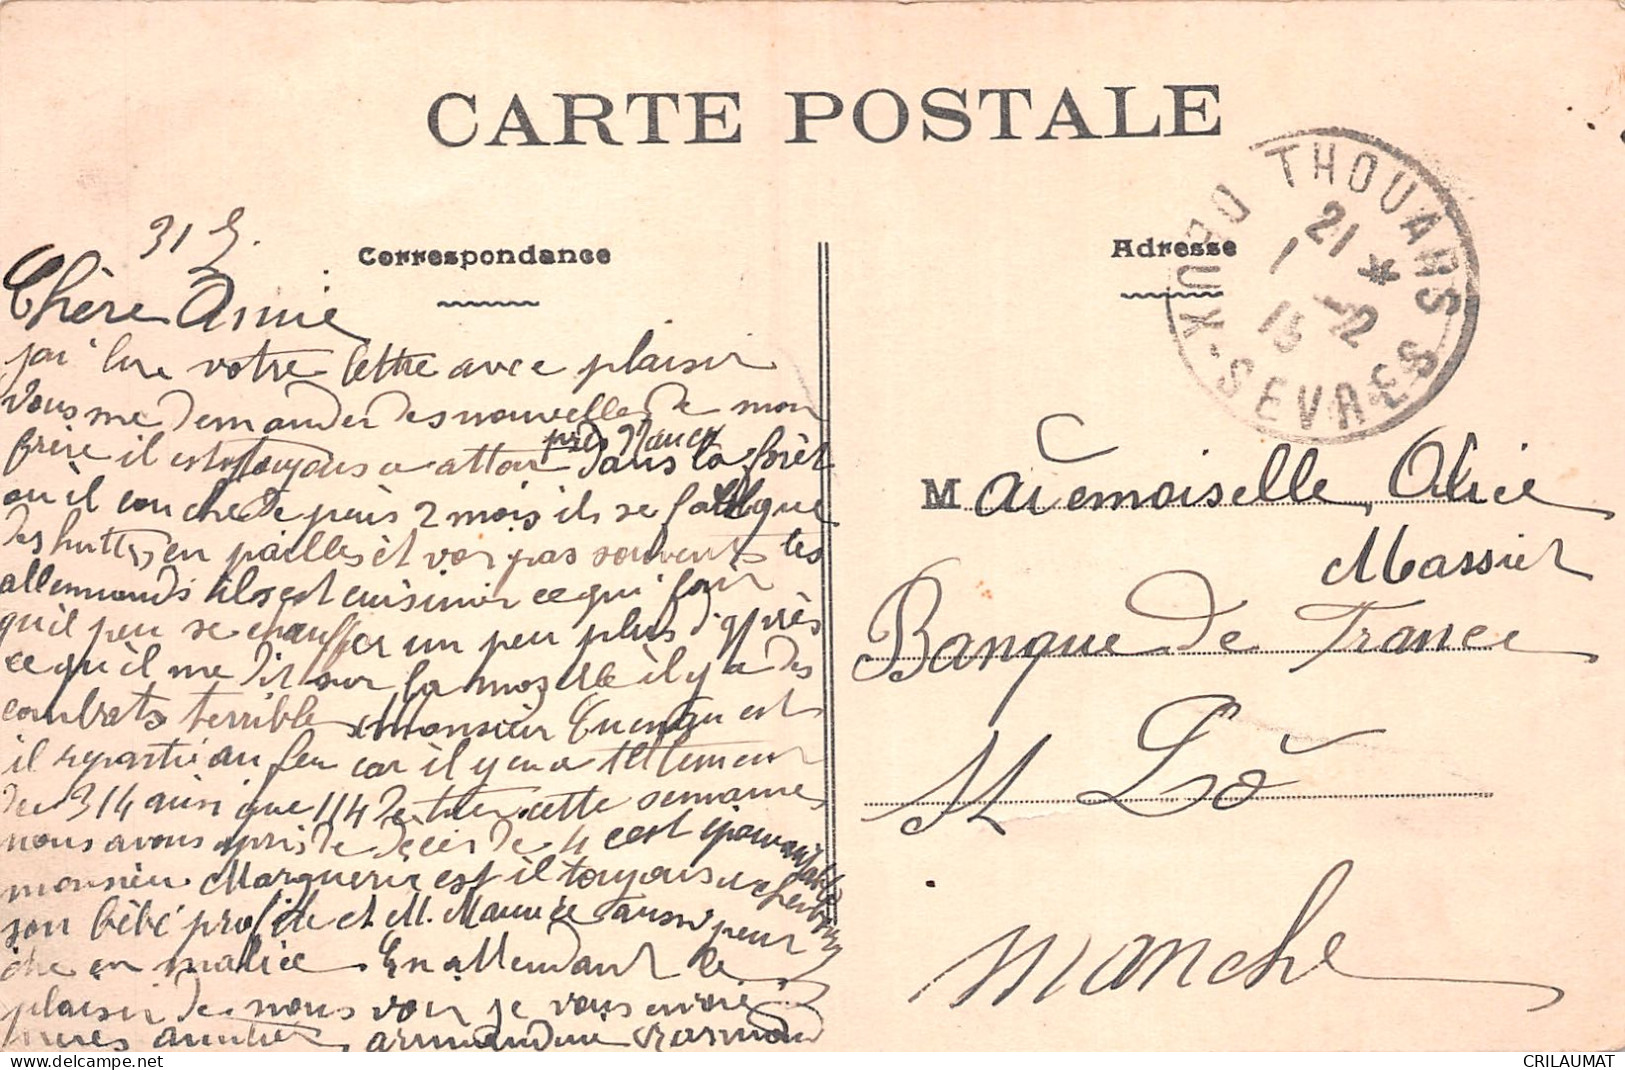 CARTE POSTALE
THOUARS
DEUX-SEVRES
21 *
1 - 2
15
Correspondance
Adresse
31
Chère Amie
j'ai lue votre lettre avec plaisir
Vous me demander des nouvelles de mon
frère il est toujours a
près Nancy
dans la forêt
ou il couche de puis 2 mois ils se
des huttes en pailles et voi pas souvent les
allemands il est cuisinier ce qui fair
qu'il peu se chauffer un peu plus d'après
ce qu'il me dit sur la mozelle il y a des
combats terrible Monsieur est
il repartie au feu car il y en a tellement
de 314 ainsi que 114 de tuer cette semaines
nous avons apris de décés de 4 cest épouvantable
monsieur Marguerie est il toujours a cherbourg
son bébé profite et M. Maurice aussi peut
être en malice. En attendant le
plaisir de nous voir je vous envoie
mes amitiés armandine
Mademoiselle, Alice
Massier
Banque de France
St Lô
Manche
CRILAUMAT